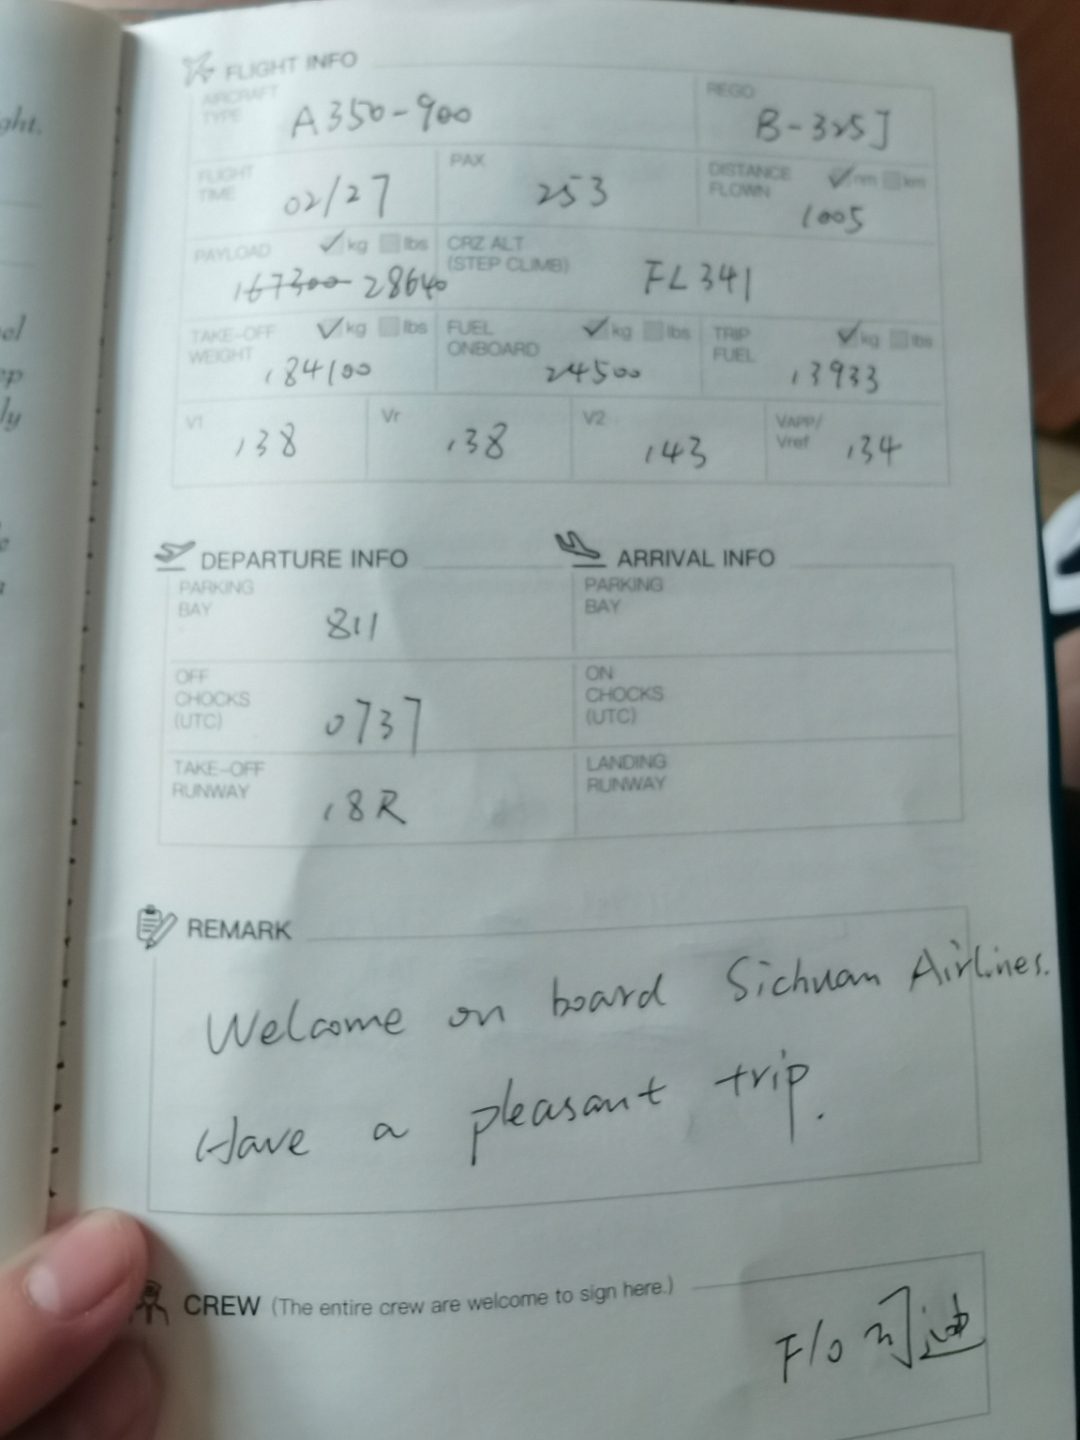 ght.
el
ep
ly
FLIGHT INFO
AIRCRAFT TYPE A350-900
REGO B-325J
FLIGHT TIME 02/27
PAX 253
DISTANCE FLOWN nm km 1005
PAYLOAD kg lbs 167300 28640
CRZ ALT (STEP CLIMB) FL341
TAKE-OFF WEIGHT kg lbs 184100
FUEL ONBOARD kg lbs 24500
TRIP FUEL kg lbs 13933
V1 138
Vr 138
V2 143
VAPP/Vref 134
DEPARTURE INFO
PARKING BAY 811
OFF CHOCKS (UTC) 0737
TAKE-OFF RUNWAY 18R
ARRIVAL INFO
PARKING BAY
ON CHOCKS (UTC)
LANDING RUNWAY
REMARK
Welcome on board Sichuan Airlines.
Have a pleasant trip.
CREW (The entire crew are welcome to sign here.)
F/O